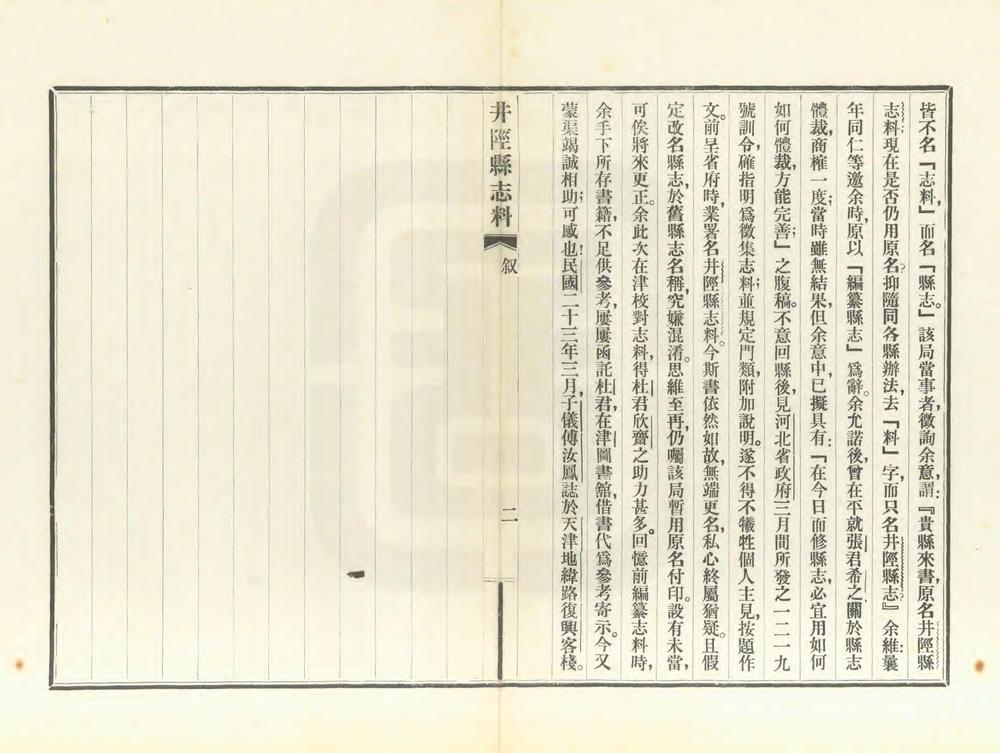 皆不名「志料」，而名「縣志」。該局當事者，徵詢余意，謂：『貴縣來書，原名井陘縣
志料；現在是否仍用原名？抑隨同各縣辦法，去「料」字，而只名井陘縣志？』余維：曩
年同仁等邀余時，原以「編纂縣志」爲辭。余允諾後，曾在平就張君希之關於縣志
體裁，商榷一度；當時雖無結果，但余意中，已擬具有：「在今日而修縣志，必宜用如何
如何體裁，方能完善；」之腹稿。不意回縣後，見河北省政府三月間所發之一二一九
號訓令，確指明爲徵集志料；並規定門類，附加說明。遂不得不犧牲個人主見，按題作
文。前呈省府時，業署名井陘縣志料。今斯書依然如故，無端更名，私心終屬猶疑。且假
定改名縣志，於舊縣志名稱，究嫌混淆。思維至再，仍囑該局暫用原名付印。設有未當，
可俟將來更正。余此次在津校對志料，得杜君欣齋之助力甚多。回憶前編纂志料時，
余手下所存書籍，不足供參考，屢屢函託杜君，在津圖書舘，借書代爲參考寄示。今又
蒙渠竭誠相助；可感也！民國二十三年三月，子儀傅汝鳳誌於天津地緯路復興客棧。
井陘縣志料
叙
二